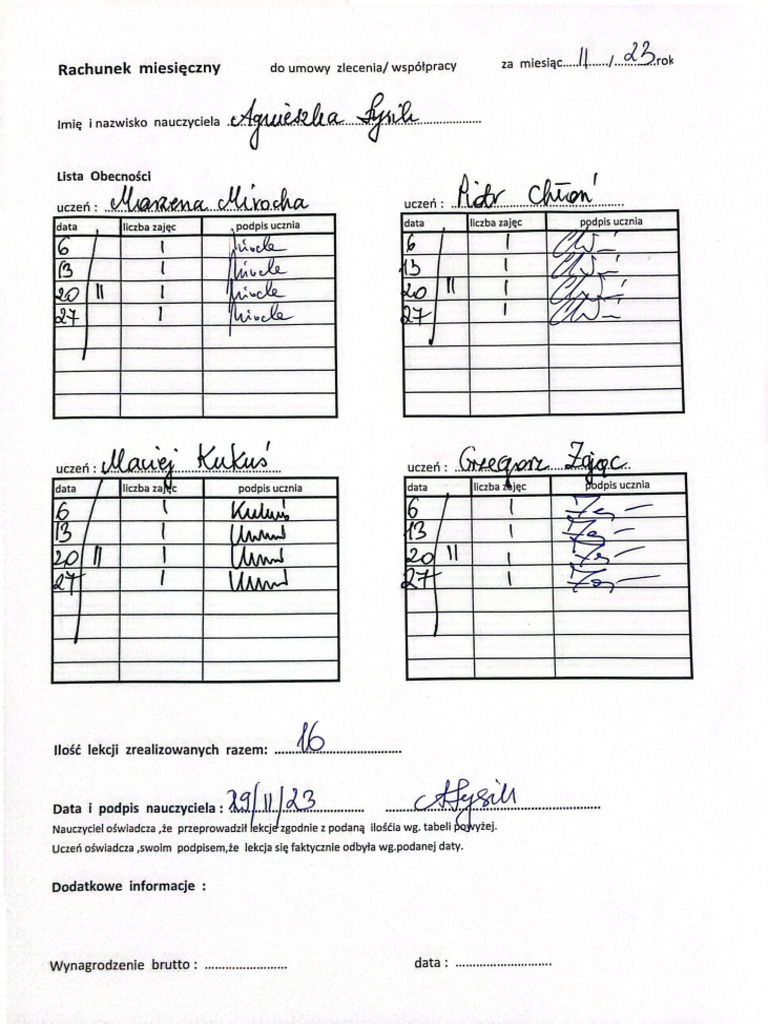 Rachunek miesięczny do umowy zlecenia/ współpracy za miesiąc.....11....../.....23.rok
Imię i nazwisko nauczyciela Agnieszka
Lista Obecności
uczeń : Marzena Mirocha
data liczba zajęc podpis ucznia
6 1
13 1
20 11 1
27 1
uczeń : Piotr Chłoń
data liczba zajęc podpis ucznia
6 1
13 1
20 11 1
27 1
uczeń : Maciej Kukuś
data liczba zajęc podpis ucznia
6 1 Kukuś
13 1
20 11 1
27 1
uczeń : Grzegorz Zając
data liczba zajęc podpis ucznia
6 1
13 1
20 11 1
27 1
Ilość lekcji zrealizowanych razem: 16
Data i podpis nauczyciela : 29/11/23
Nauczyciel oświadcza ,że przeprowadził lekcje zgodnie z podaną ilośćia wg. tabeli powyżej.
Uczeń oświadcza ,swoim podpisem,że lekcja się faktycznie odbyła wg.podanej daty.
Dodatkowe informacje :
Wynagrodzenie brutto : ........................ data : ............................